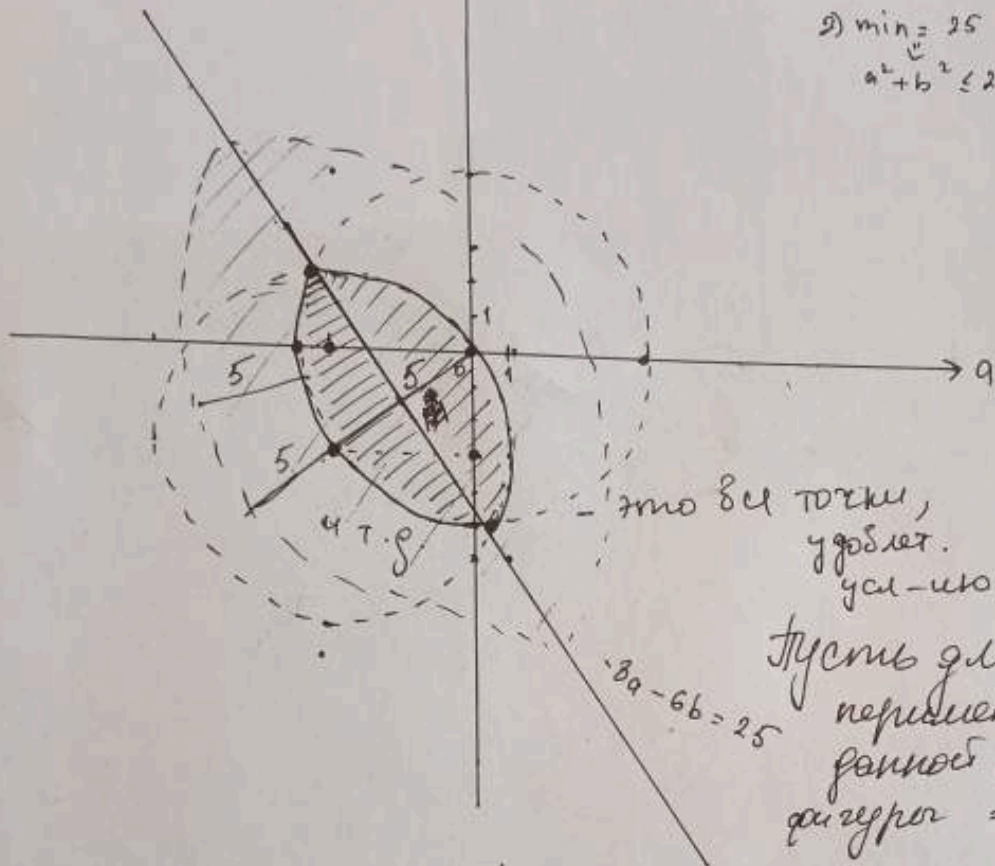 2) min = 25
a² + b² ≤ 2
1
a
5
5
б
1
5
и т.д
- это все точки,
удовлет.
усл-ию
-8a - 6b = 25
Пусть
данной
фигуры =